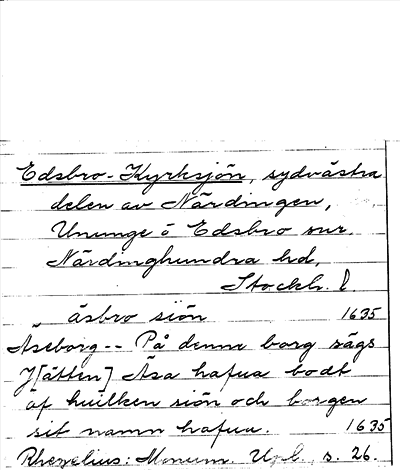 Edsbro-Kyrksjön, sydvästra
delen av Närdingen,
Ununge o Edsbro snr.
Närdinghundra hd,
Stockh. l.
äsbro siön 1635
Äseborg -- På denna borg sägs
J[ätten] Äsa hafua bodt
af huilken siön och borgen
sit namn hafua. 1635
Rhezelius: Monum. Upl. s. 26.